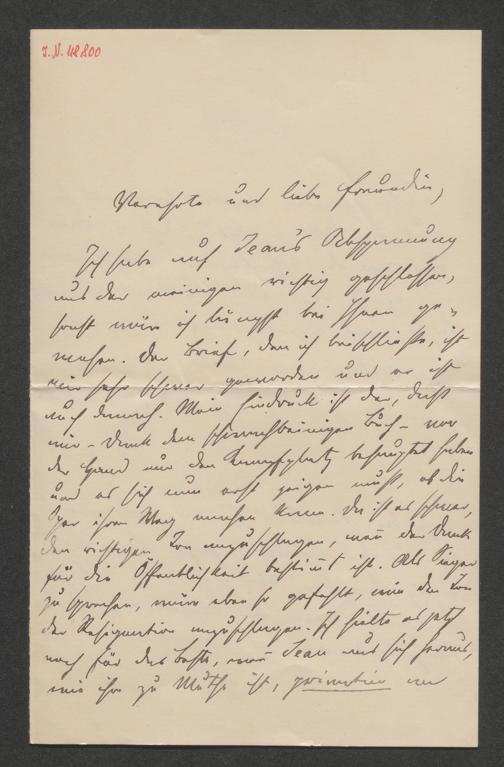 J.N. 48800
Verehrte und liebe Freundin,
Ich habe aus Jean's Abspannung
aus der meinigen richtig geschlossen,
sonst wäre ich längst bei Ihnen ge-
wesen. Der Brief, den ich beischließe, ist
mir sehr schwer geworden und er ist
auch danach. Mein Eindruck ist der, daß
wir – Dank dem Buch – vor
der Hand nur den Kampfplatz behauptet haben
und es sich nun erst zeigen muß, ob die
Oper ihren Weg machen kann. Da ist es schwer,
den richtigen Ton anzuschlagen, wenn der Dank
für die Öffentlichkeit bestimmt ist. Als Sieger
zu sprechen, wäre eben so gefehlt, wie den Ton
der Resignation anzuschlagen. Ich hielte es jetzt
noch für das Beste, wenn Jean aus sich heraus,
wie ihm zu Muthe ist, privatim an